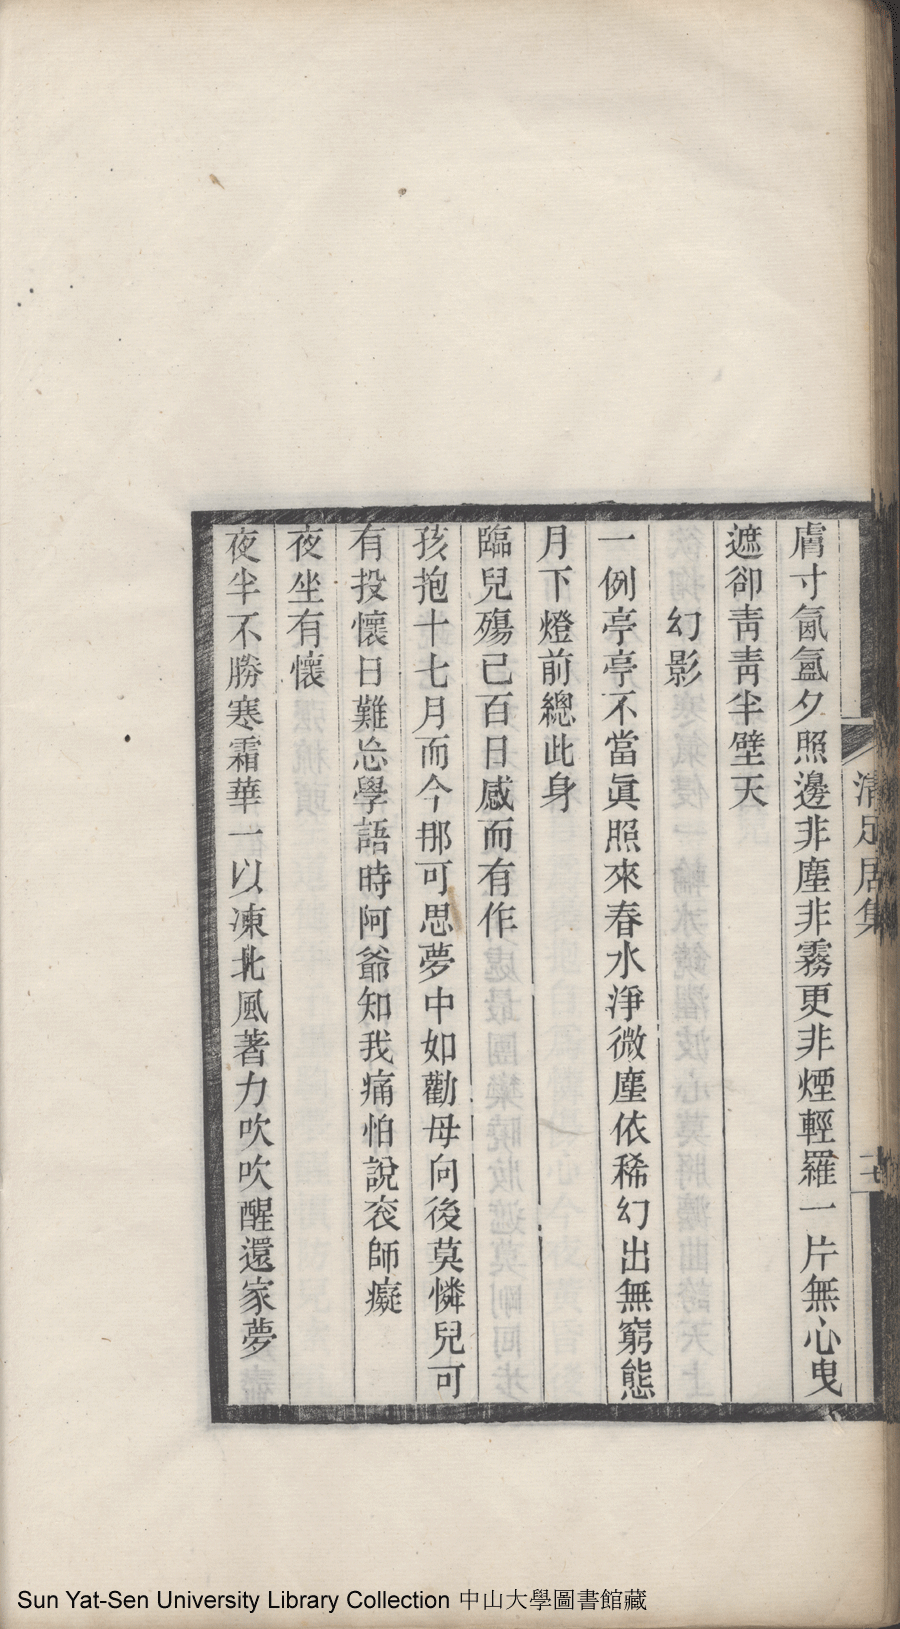 膚寸氤氳夕照邊非塵非霧更非煙輕羅一片無心曳
遮卻靑靑半壁天
幻影
一例亭亭不當眞照來春水淨微塵依稀幻出無窮態
月下燈前總此身
臨兒殤已百日感而有作
孩抱十七月而今那可思夢中如勸母向後莫憐兒可
有投懷日難忘學語時阿爺知我痛怕說袞師癡
夜坐有懷
夜半不勝寒霜華一以凍北風著力吹吹醒還家夢
清足居集
Sun Yat-Sen University Library Collection 中山大學圖書館藏